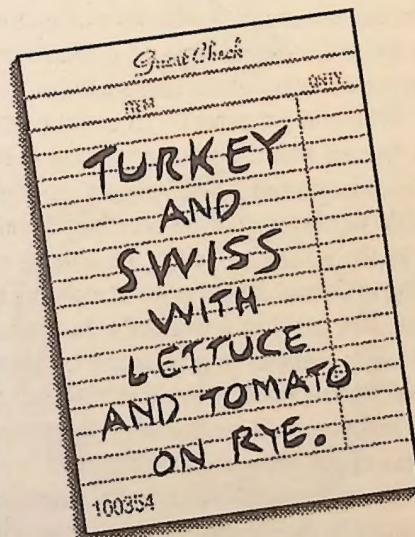 Guest Check
ITEM QNTY.
TURKEY
AND
SWISS
WITH
LETTUCE
AND TOMATO
ON RYE.
100354